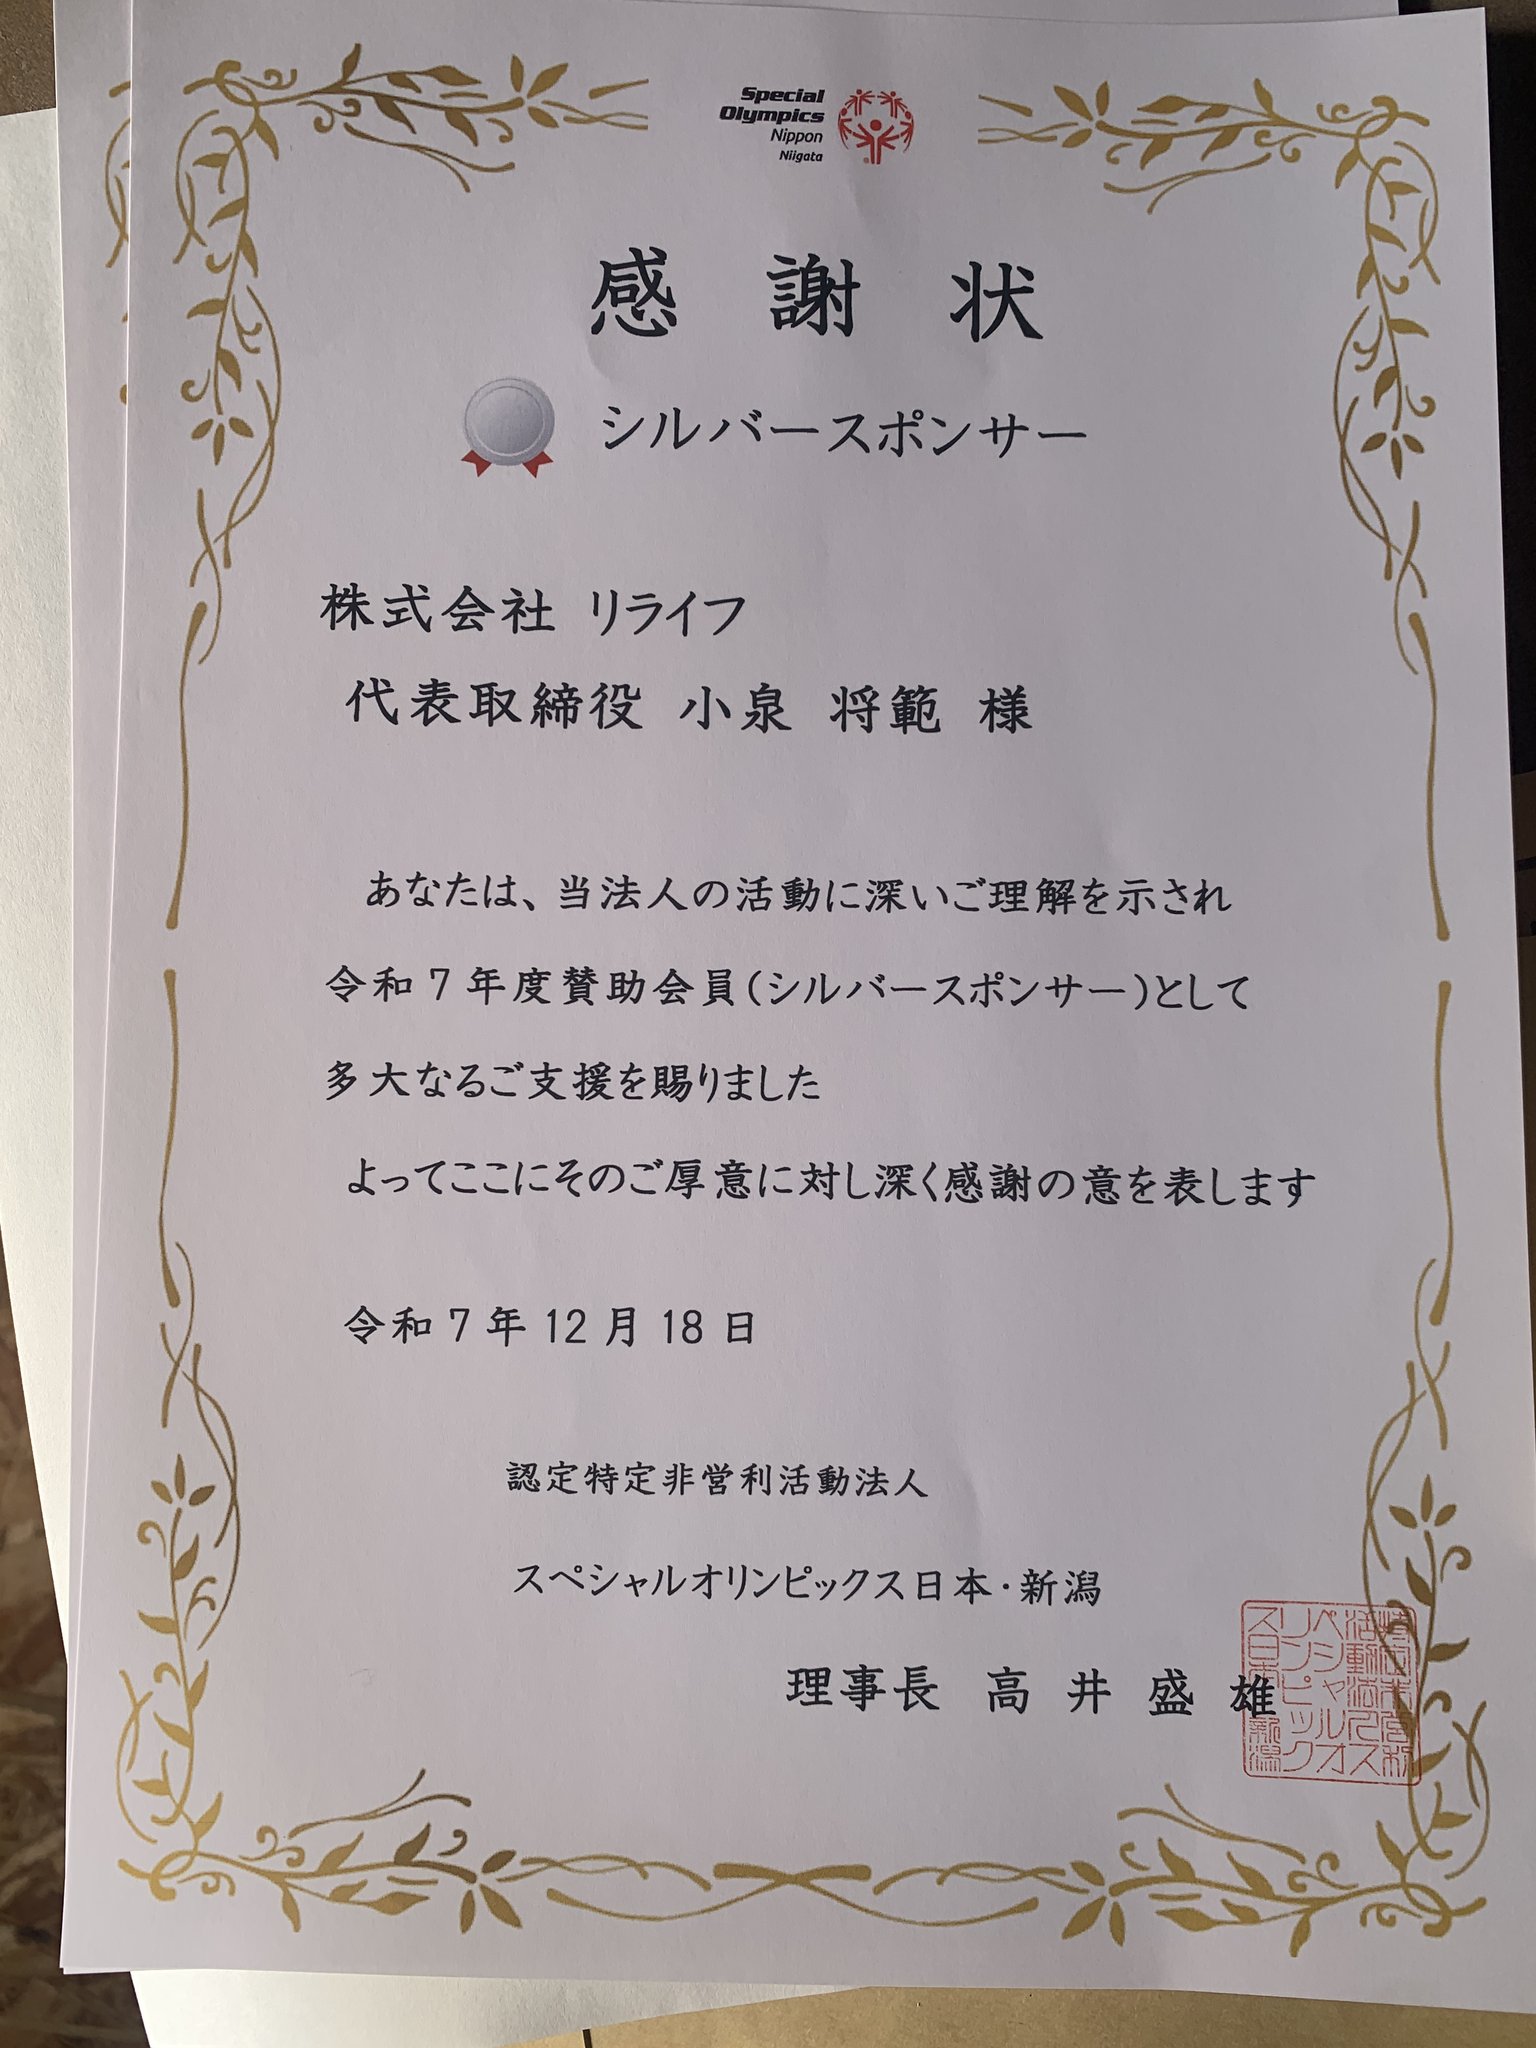 Special
Olympics
Nippon
Niigata
感 謝 状
シルバースポンサー
株式会社 リライフ
代表取締役 小泉 将範 様
あなたは、当法人の活動に深いご理解を示され
令和7年度賛助会員(シルバースポンサー)として
多大なるご支援を賜りました
よってここにそのご厚意に対し深く感謝の意を表します
令和7年12月18日
認定特定非営利活動法人
スペシャルオリンピックス日本・新潟
理事長 高井 盛雄
特定非営利
活動法人ス
ペシャルオ
リンピック
ス日本・新潟